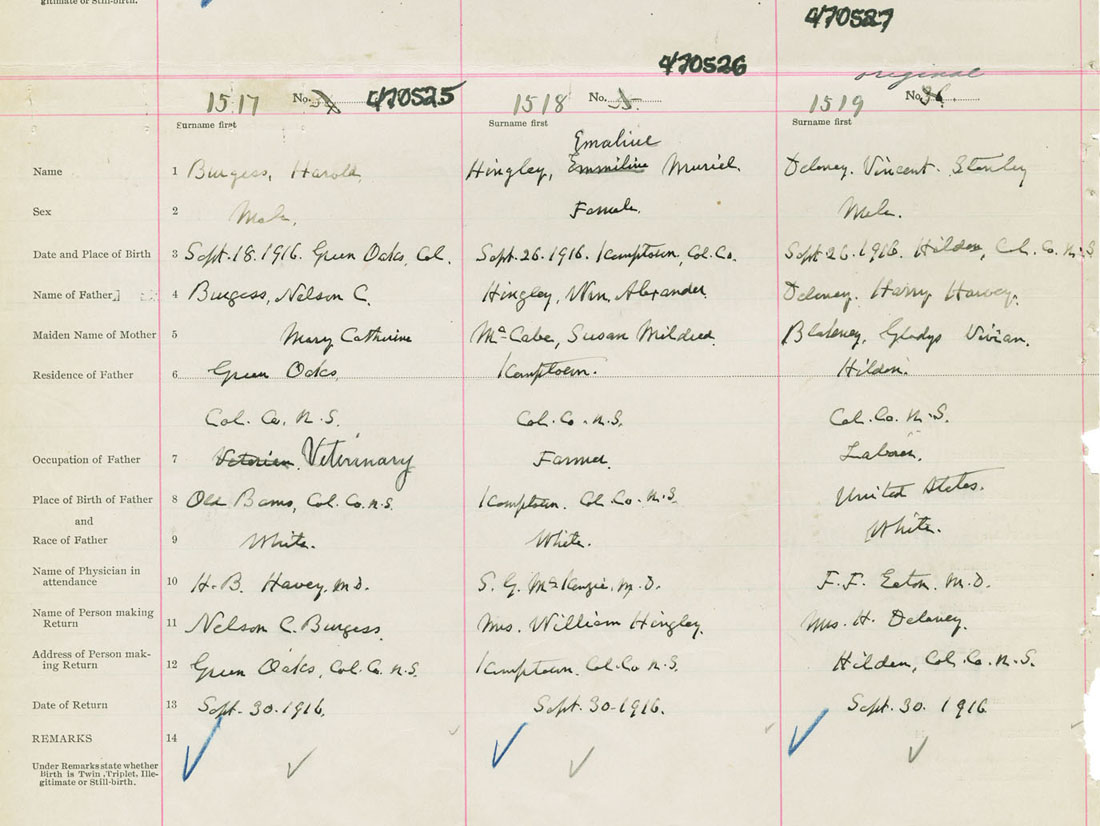 gitimate or Still-birth.
470527
470526
original
1517 No. 34 470525 1518 No. 35 1519 No. 36
Surname first Surname first Surname first
Emaline
Name 1 Burgess, Harold Hingley, Emmiline Muriel Delaney. Vincent Stanley
Sex 2 Male. Female. Male.
Date and Place of Birth 3 Sept. 18. 1916. Green Oaks, Col. Sept. 26. 1916. Kemptown, Col. Co. Sept 26. 1916. Hilden, Col. Co. N.S
Name of Father 4 Burgess, Nelson C. Hingley, Wm. Alexander. Delaney. Harry Harvey.
Maiden Name of Mother 5 Mary Catherine McCabe, Susan Mildred. Blakeney, Gladys Vivian.
Residence of Father 6 Green Oaks, Kemptown. Hilden.
Col. Co. N.S. Col. Co. N.S. Col. Co. N.S.
Occupation of Father 7 Veterinary Farmer. Laborer.
Place of Birth of Father 8 Old Barns, Col. Co. N.S. Kemptown. Col Co. N.S United States.
and
Race of Father 9 White. White. White.
Name of Physician in
attendance 10 H. B. Havey, M.D. S. G. McKenzie, M.D. F. F. Eaton, M.D.
Name of Person making
Return 11 Nelson C. Burgess. Mrs. William Hingley. Mrs. H. Delaney.
Address of Person mak-
ing Return 12 Green Oaks, Col. Co. N.S Kemptown, Col. Co N.S. Hilden, Col. Co. N.S.
Date of Return 13 Sept. 30. 1916. Sept. 30. 1916. Sept. 30. 1916
REMARKS 14
Under Remarks state whether
Birth is Twin, Triplet, Ille-
gitimate or Still-birth.